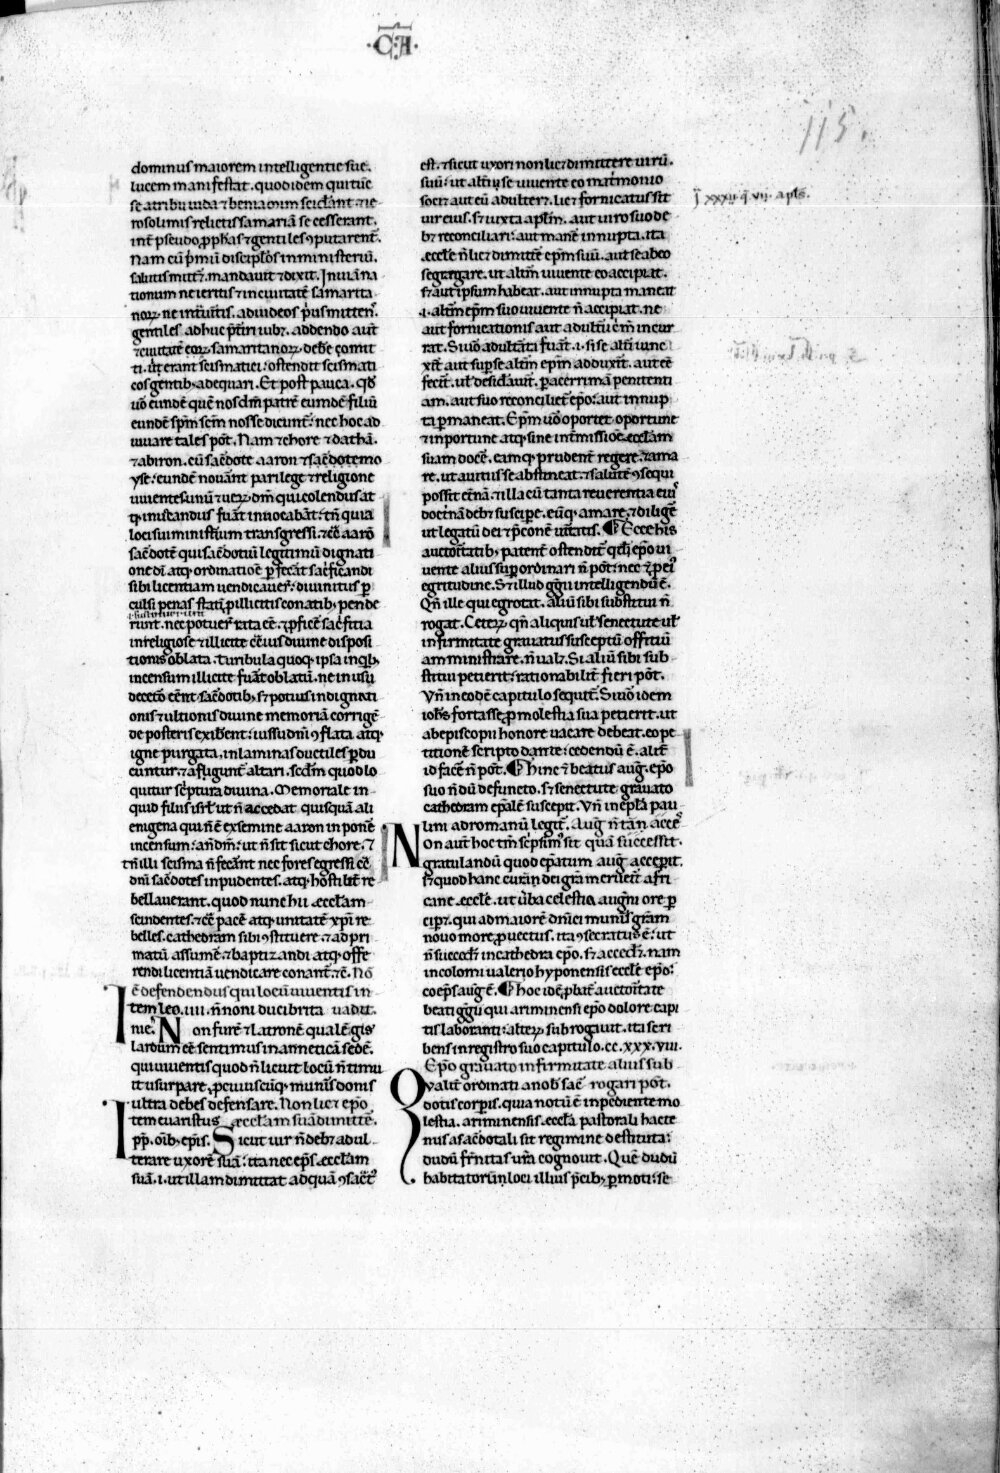 ·C·A·
115.
dominus maiorem intelligentie sue.
lucem manifestat. quod idem qui tūc
se a tribu iuda ⁊ beniamin scidant ⁊ ie
rosolimis relictis samariā secesserant.
int̄ pseudo ꝓph̄as ⁊ gentiles ꝯputarent᷑.
Nam cū p̄mū discipl̄os in ministeriū
salutis mitt̄ꝫ. mandauit ⁊ dixit. In uiā na
tionum ne ieritis ⁊ in ciuitatē samarita
noꝝ ne int̄uitis. ad iudeos p̄us mittens.
gentiles adhuc p̄t̄iri iubꝫ. addendo aut̄
⁊ ciuitatē eoꝝ samaritanoꝝ debe᷑ ꝯomit
ti. ut̄ erant scismatici: ostendit scismati
cos gentibꝫ adequari. Et post pauca. qđ
uō eundē quē nos dm̄ patrē eumdē filiū
eundē sp̄m sc̄m nosse dicunt᷑: nec hoc ad
iuuare tales pōt. Nam ⁊ chore ⁊ dathā.
⁊ abiron. cū sac̄dote aaron ⁊ sac̄dote mo
yse: eundē nouant̄ pari lege ⁊ religione
uiuentes unū ⁊ ueꝝ dm̄ qui colendus at
qꝫ inuocandus fuāt inuocabāt: tn̄ quia
loci sui minist̄ium transgressi. ⁊ c̄ aarō
sac̄dotē qui sac̄dotiū legitimū dignati
one dī atqꝫ ordinatiōe ꝑcepat sac̄ficandi
sibi licentiam uendicauer̄: diuinitus ꝑ
culsi penas statī ꝓ illicitis conatibꝫ pende
runt. nec potuer̄ rata eē. ⁊ ꝓficē sac̄ficia
irreligiose ⁊ illicite ꝯt̄ ius diuine disposi
tionis oblata. Turibula quoqꝫ ipsa in qͥbꝫ
incensum illicite fuāt oblatū. ne in usu
de cet̄o eēnt sac̄dotibꝫ. sꝫ potius indignati
onis ⁊ ultionis diuine memoriā corrigē
de posteris exibent: iussu dn̄i ꝯflata atqꝫ
igne purgata. in laminas ductiles ꝑdu
cuntur. ⁊ affigunt᷑ altari. sc̄dm quod lo
quitur sc̄ptura diuina. Memoriale in
quid filiis isrł. ut n̄ accedat quisquā ali
enigena qui n̄ ē ex semine aaron inponē
incensum: an̄ dm̄: ut n̄ sit sicut chore. ⁊
tn̄ illi scisma n̄ fecāt nec foras egressi cō
dn̄i sac̄dotes inpudentes. atqꝫ hostilit̄ re
bellauerant. quod nunc hii ecclesiam
scindentes. ⁊ c̄ pacē atqꝫ unitatē xp̄i re
belles. cathedram sibi ꝯstituere ⁊ ad pri
matū assumē ⁊ baptizandi atqꝫ offe
rendi licentiā uendicare conant᷑. ⁊c̄. Nō
ē defendendus qui locū uiuentis in
Item leo. iiii. n̄ noni duci brita uadit.
nie. Non furē ⁊ latronē qualē gis
lardum eē sentimus in anneticā sedē.
qui uiuentis quod n̄ licuit locū n̄ timu
it usurpare. ꝓ cuiuscūqꝫ munis̄ donis
ultra debes defensare. Non licꝫ epō
Item euaristus ecclesiam suā dimitte᷑.
pp̄. oīb. ep̄is. Sicut uir n̄ debꝫ adul
terare uxorē suā: ita nec ep̄s ecclesiam
suā. i. ut illam dimittat ad quā ꝯsac̄t᷑
est. ⁊ sicut uxori non licꝫ dimittere uirū
suū: ut alt̄i se uiuente eo mat̄monio
sociꝫ aut eū adulterꝫ. licꝫ fornicatus sit
uir eius. sꝫ iuxta apl̄m. aut uiro suo de
bꝫ reconciliari: aut manē innupta. ita
eccl̄e n̄ licꝫ dimittē ep̄m suū. aut se ab eo
segregare. ut alt̄m uiuente eo accipiat.
sꝫ aut ipsum habeat. aut innupta maneat
.i. alt̄m ep̄m suo uiuente n̄ accipiat. ne
aut fornicationis aut adult̄ii c̄m̄ incur
rat. Si uō adult̄ata fuāt .i. si se alt̄i iunx
xit̄. aut sup se alt̄m ep̄m adduxit̄. aut eē
fecit̄. ul̄ desid̄auit̄. ꝑ acerrimā penitenti
am. aut suo reconciliet᷑ ep̄o: aut innup
ta ꝑmaneat. Ep̄m uō oportet oportune
⁊ inportune atqꝫ sine int̄missiōe eccl̄am
suam docē. eamqꝫ prudent̄ regere. ⁊ ama
re. ut a uitiis se abstineat. ⁊ salutē ꝯsequi
possit et̄nā. ⁊ illa cū tanta reuerentia eiꝰ
doct̄nā debꝫ suscipe. eūqꝫ amare. ⁊ diligē
ut legatū dei ⁊ p̄conē uītatis. ¶ Ecce his
auctoritatibꝫ patent̄ ostendit᷑ qđ ep̄o ui
uente alius sup ordinari n̄ pōt. nec ⁊ p̄ eiꝰ
egritudine. Sꝫ illud ggu intelligendū ē.
Qn̄ ille qui egrotat. aliū sibi substitui n̄
rogat. Ceteꝝ qn̄ aliquis ul̄ senectute ul̄
infirmitate grauatus susceptū offitiū
amministrare. n̄ ualꝫ. Si aliū sibi sub
stitui petierit: rationabilit̄ fieri pōt.
Vn̄ in eodē capitulo sequit᷑. Si uō idem
ioh̄s fortasse ꝓ molestia sua petierit. ut
ab episcopii honore uacare debeat. eo pe
titionē scripto dante: cedendū ē. alit̄
id facē n̄ pōt. ¶ Hinc ⁊ beatus aug. ep̄o
suo n̄dū defuncto. sꝫ senectute grauato
cathedram ep̄alē suscepit. Vn̄ in ep̄la pau
lini ad romanū legit᷑. Aug n̄ tān accē
Non aut̄ hoc tm̄ sc̄psim᷒ sit quā successit.
gratulandū quod ep̄atum aug acceperit.
sꝫ quod hanc curā dei gr̄am meruerit̄ afri
cane eccl̄e. ut ūba celestia augn̄i ore ꝑ
ciperꝫ. qui ad maiorē dn̄ici munīs gr̄am
nouo more ꝓuectus. ita ꝯsecratus ē: ut
n̄ succedꝫ in cathedra ep̄o. sꝫ accedꝫ. nam
incolomi ualerio hyponensis eccl̄e ep̄o:
coep̄s aug ē. ¶ hoc idē ꝓbat᷑ auctoritate
beati ggu qui ariminensi ep̄o dolore capi
tis laboranti: alteꝝ subrogauit. ita scri
bens in registro suo capitulo. cc.xxx.viii.
Ep̄o grauato infirmitate alius sub
Qualit̄ ordinati a nob̄ sac̄ rogari pōt.
dotis corpis. quia notū ē inpediente mo
lestia. ariminensis eccl̄a pastorali hacte
nus a sac̄dotali sit regimine destituta:
dudū fr̄nitas ur̄a cognouit. Quē dudū
habitatorū loci illius p̄cibꝫ ꝑmoti: se
J xxxii. q̄. vii. apl̄s.